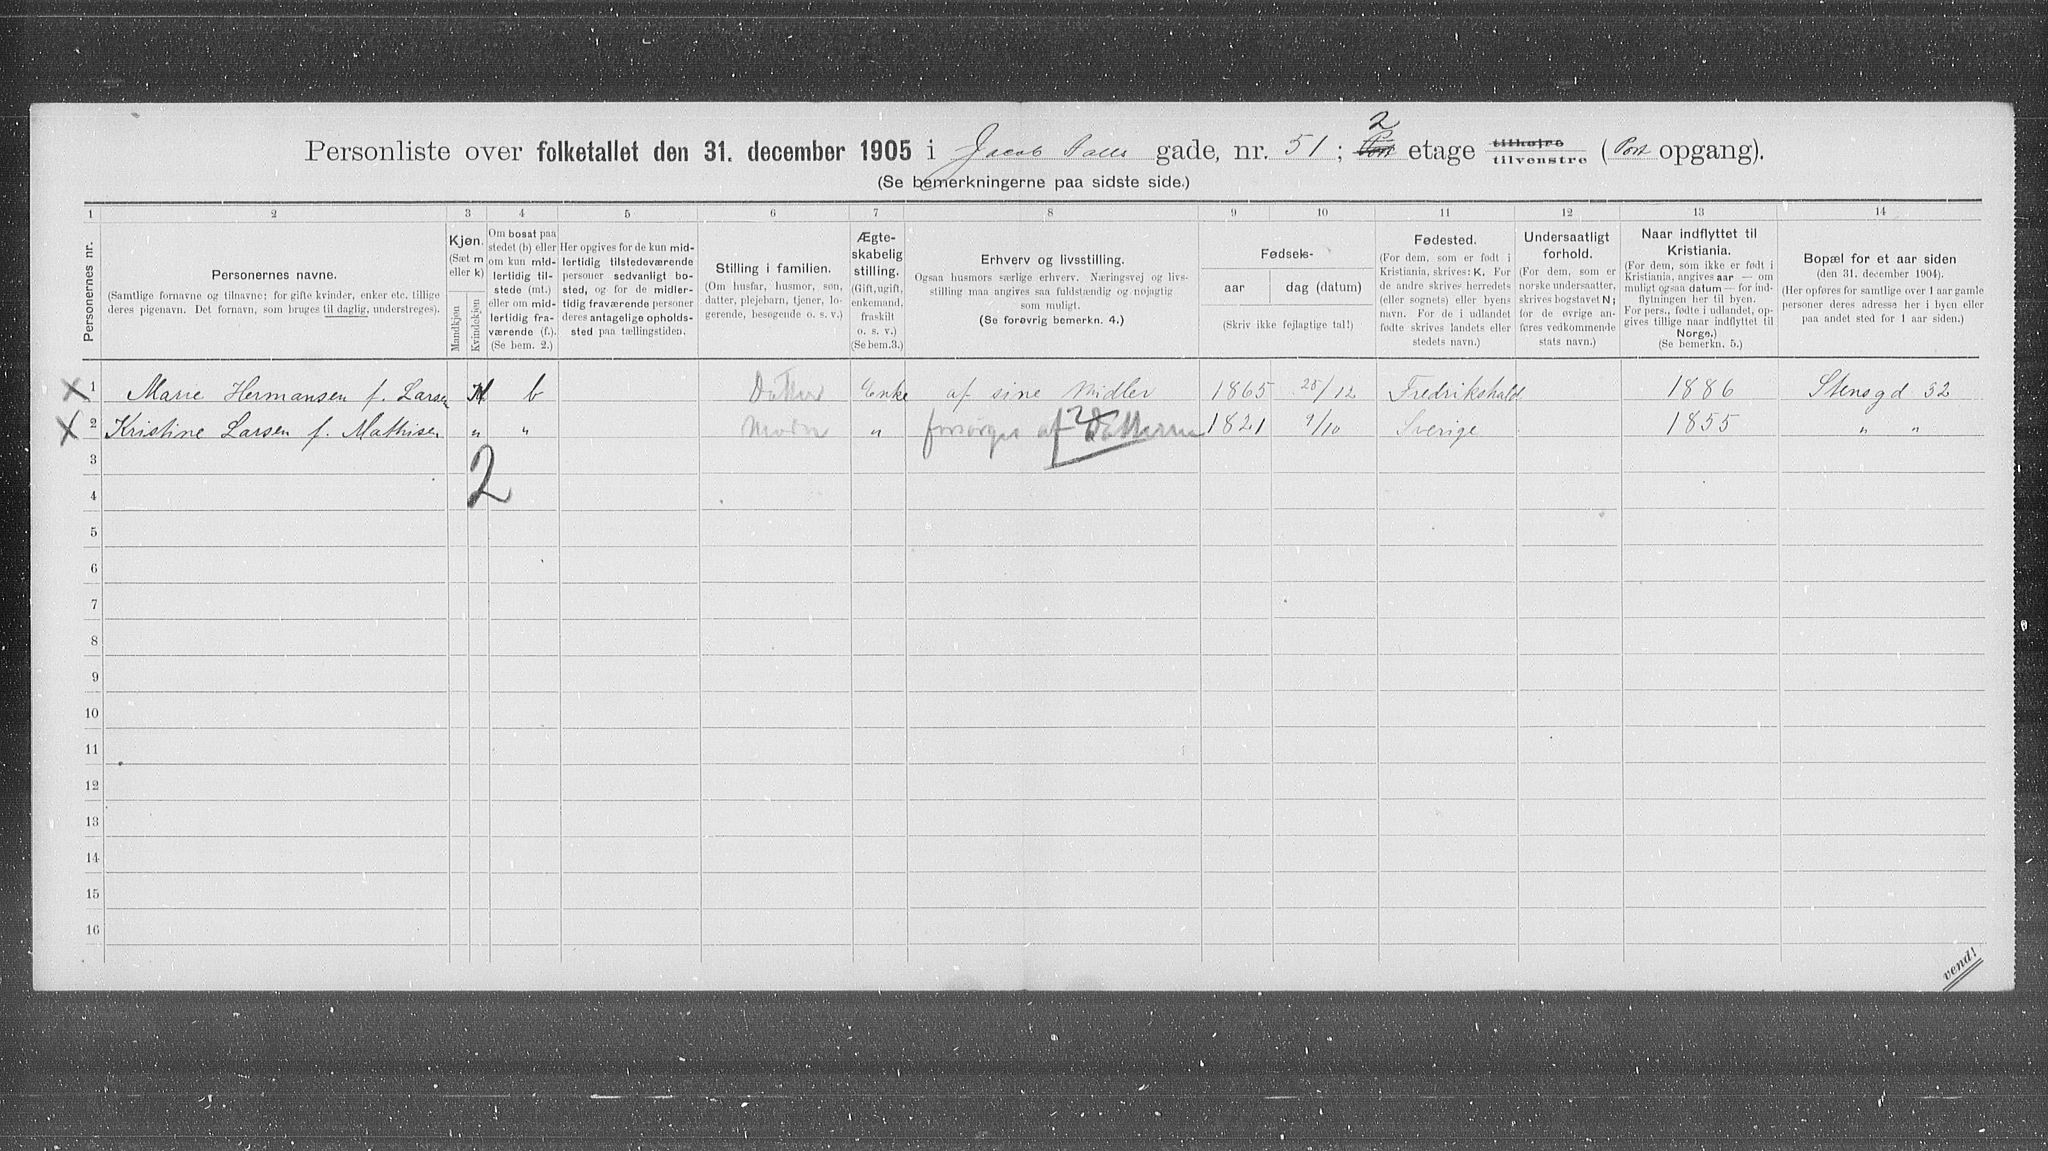 Personliste over folketallet den 31. december 1905 i Jacob Aalls gade, nr. 51; 2 Port etage tilhøjre tilvenstre (Port opgang).
(Se bemerkningerne paa sidste side.)
1 2 3 4 5 6 7 8 9 10 11 12 13 14
Personernes nr.
Personernes navne.
(Samtlige fornavne og tilnavne; for gifte kvinder, enker etc. tillige
deres pigenavn. Det fornavn, som bruges til daglig, understreges).
Kjøn.
(Sæt m
eller k)
Mandkjøn
Kvindekjøn
Om bosat paa
stedet (b) eller
om kun mid-
lertidig til-
stede (mt.)
eller om mid-
lertidig fra-
værende (f.).
(Se bem. 2.)
Her opgives for de kun mid-
lertidig tilstedeværende
personer sedvanligt bo-
sted, og for de midler-
tidig fraværende personer
deres antagelige opholds-
sted paa tællingstiden.
Stilling i familien.
(Om husfar, husmor, søn,
datter, plejebarn, tjener, lo-
gerende, besøgende o. s. v.)
Ægte-
skabelig
stilling.
(Gift, ugift,
enkemand,
fraskilt
o. s. v.)
(Se bem. 3.)
Erhverv og livsstilling.
Ogsaa husmors særlige erhverv. Næringsvej og livs-
stilling maa angives saa fuldstændig og nøjagtig
som muligt.
(Se forøvrig bemerkn. 4.)
Fødsels-
aar
dag (datum)
(Skriv ikke fejlagtige tal!)
Fødested.
(For dem, som er født i
Kristiania, skrives: K. For
de andre skrives herredets
(eller sognets) eller byens
navn. For de i udlandet
fødte skrives landets eller
stedets navn.)
Undersaatligt
forhold.
(For dem, som er
norske undersaatter,
skrives bogstavet N;
for de øvrige an-
føres vedkommende
stats navn.)
Naar indflyttet til
Kristiania.
(For dem, som ikke er født i
Kristiania, angives aar — om
muligt ogsaa datum — for ind-
flytningen her til byen.
For pers., fødte i udlandet, op-
gives tillige naar indflyttet til
Norge.)
(Se bemerkn. 5.)
Bopæl for et aar siden
(den 31. december 1904).
(Her opføres for samtlige over 1 aar gamle
personer deres adresse her i byen eller
paa andet sted for 1 aar siden.)
X 1 Marie Hermansen f. Larsen K b Datter Enke af sine Midler 1865 25/12 Fredrikshald 1886 Stensgd 32
X 2 Kristine Larsen f. Mathisen " " Moder " forsørges af Datteren 1821 9/10 Sverige 1855 " "
3
2
4
5
6
7
8
9
10
11
12
13
14
15
16
vend!